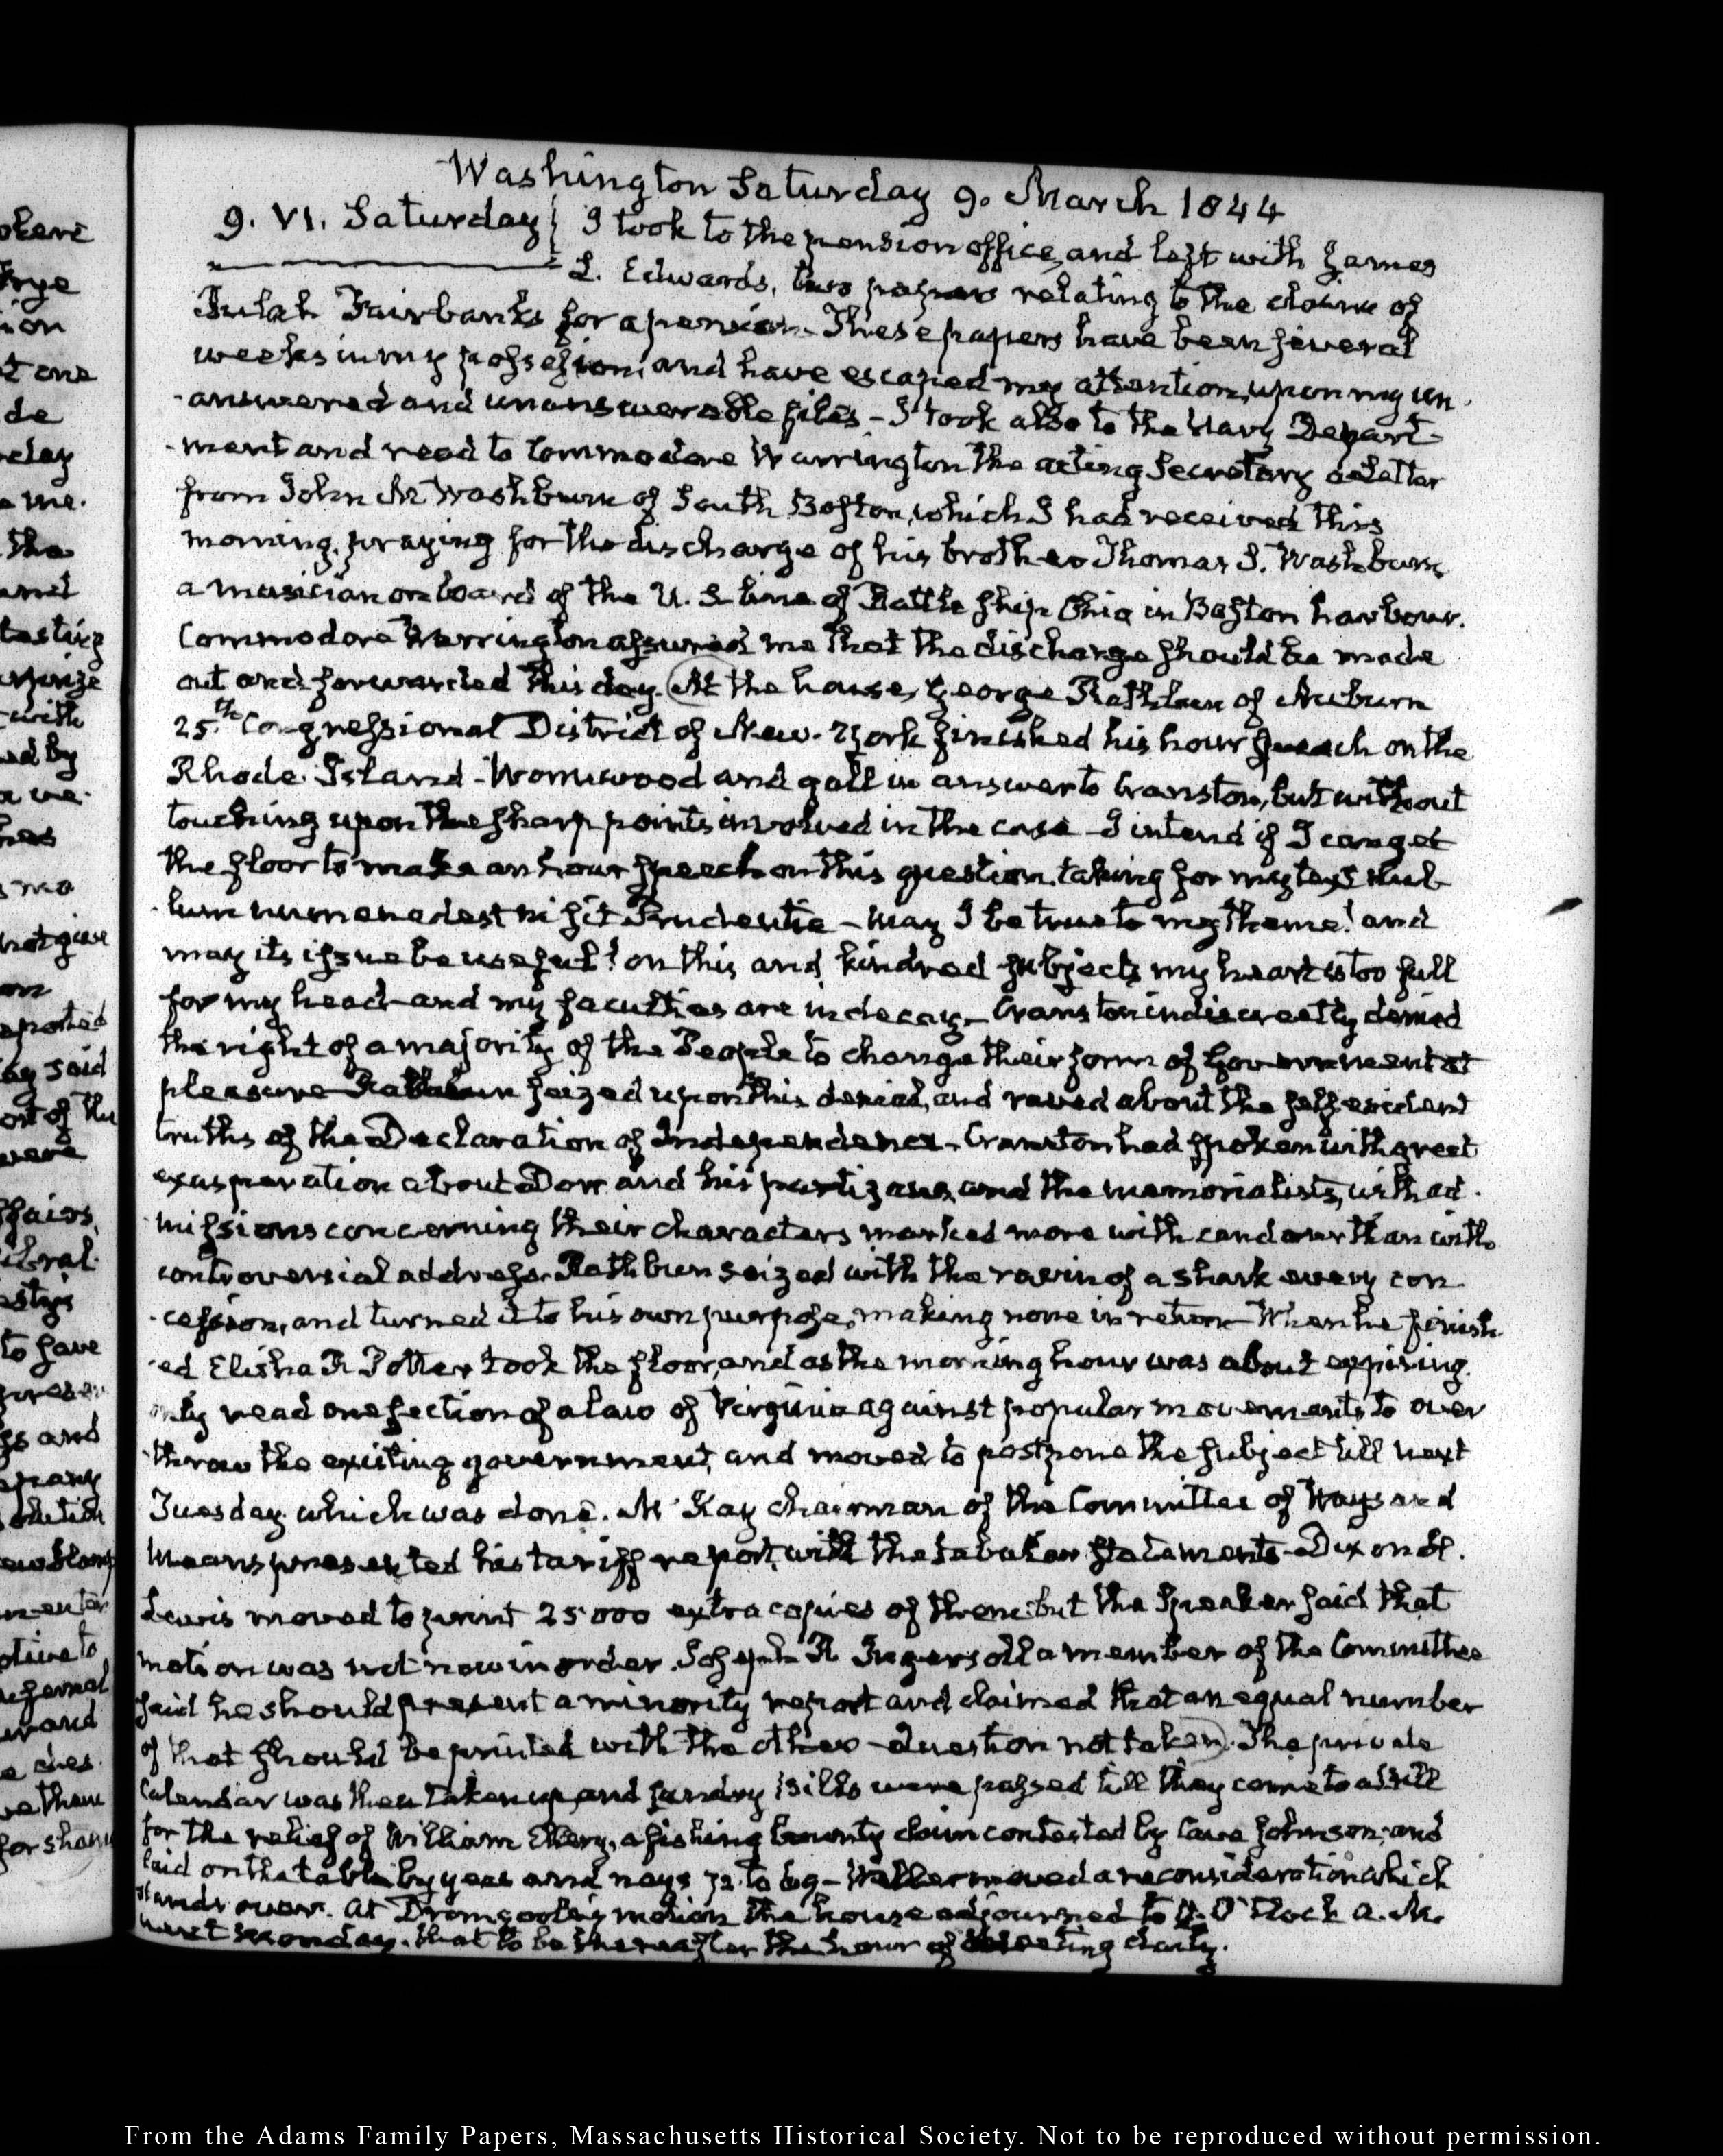 Washington Saturday 9. March 1844
9. VI. Saturday I took to the pension office, and left with James
L. Edwards, two papers relating to the claim of
Judah Fairbanks for a pension. These papers have been several
weeks in my possession, and have escaped my attention, upon my un-
answered and unanswerable files — I took also to the Navy Depart-
ment and read to Commodore Warrington the acting Secretary a letter
from John M Washburn of South Boston, which I had received this
morning, praying for the discharge of his brother Thomas S. Washburn
a musician on board of the U. S. line of Battle ship Ohio in Boston harbour.
Commodore Warrington assured me that the discharge should be made
out and forwarded this day. At the house, George Rathbun of Auburn
25.th Congressional District of New-York finished his hour speach on the
Rhode-Island-Wormwood and gall in answer to Cranston, but without
touching upon the sharp points involved in the case — I intend if I can get
the floor to make an hour speech on this question, taking for my text Nul-
lum numen adest ni sit Prudentia — May I be true to my theme! and
may its issue be useful! on this and kindred subjects my heart is too full
for my head—and my faculties are in decay — Cranston indiscreetly denied
the right of a majority of the People to change their form of Government at
pleasure Rathbun seized upon this denial, and raved about the self evident
truths of the Declaration of Independence — Cranston had spoken with great
exasperation about Dorr and his partizans, and the memorialists, with ad-
missions concerning their characters marked more with candour than with
controversial address. Rathbun seized with the ravin of a shark every con
-cession, and turned it to his own purpose, making none in return — When he finish-
ed Elisha R Potter took the floor, and as the morning hour was about expiring,
only read one section of a law of Virginia against popular movements to over
-throw the existing government, and moved to postpone the subject till next
Tuesday, which was done. McKay chairman of the Committee of Ways and
Means presented his tariff report, with the tabular statements — Dixon H.
Lewis moved to print 25000 extra copies of them: but the Speaker said that
motion was not now in order. Joseph R. Ingersoll a member of the Committee
said he should present a minority report and claimed that an equal number
of that should be printed with the other — Question not taken. The private
Calendar was then taken up, and sundry Bills were passed till they came to a Bill
for the relief of William Ellery, a fishing bounty claim contested by Cave Johnson, and
laid on the table by yeas and nays 72 to 69 — moved a reconsideration which
stands over. At Dromgoole's motion the house adjourned to 11. O'Clock A.M.
next Monday. that to be thereafter the hour of meeting daily.